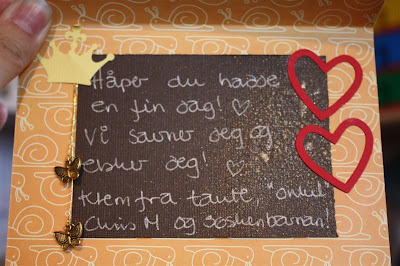 Håper du hadde
en fin dag! ♡
Vi savner deg og
elsker deg! ♡
Klem fra tante, "onkel"
Chris M og søskenbarnan!